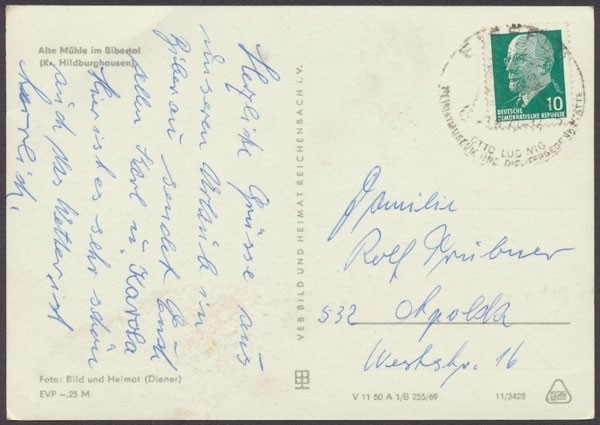 Alte Mühle im Bibertal
(Kr. Hildburghausen)
Herzliche Grüsse aus
unserem Urlaub in
Biberau sendet Euch
allen Karl u. Karola
hier ist es sehr schön
auch das Wetter ist
herrlich.
Foto: Bild und Heimat (Diener)
EVP –,25 M
VEB BILD UND HEIMAT REICHENBACH I. V.
10
DEUTSCHE
DEMOKRATISCHE REPUBLIK
OTTO LUDWIG
Familie
Rolf Grübner
532 Apolda
Weststr. 16
V 11 50 A 1/B 255/69
11/3428